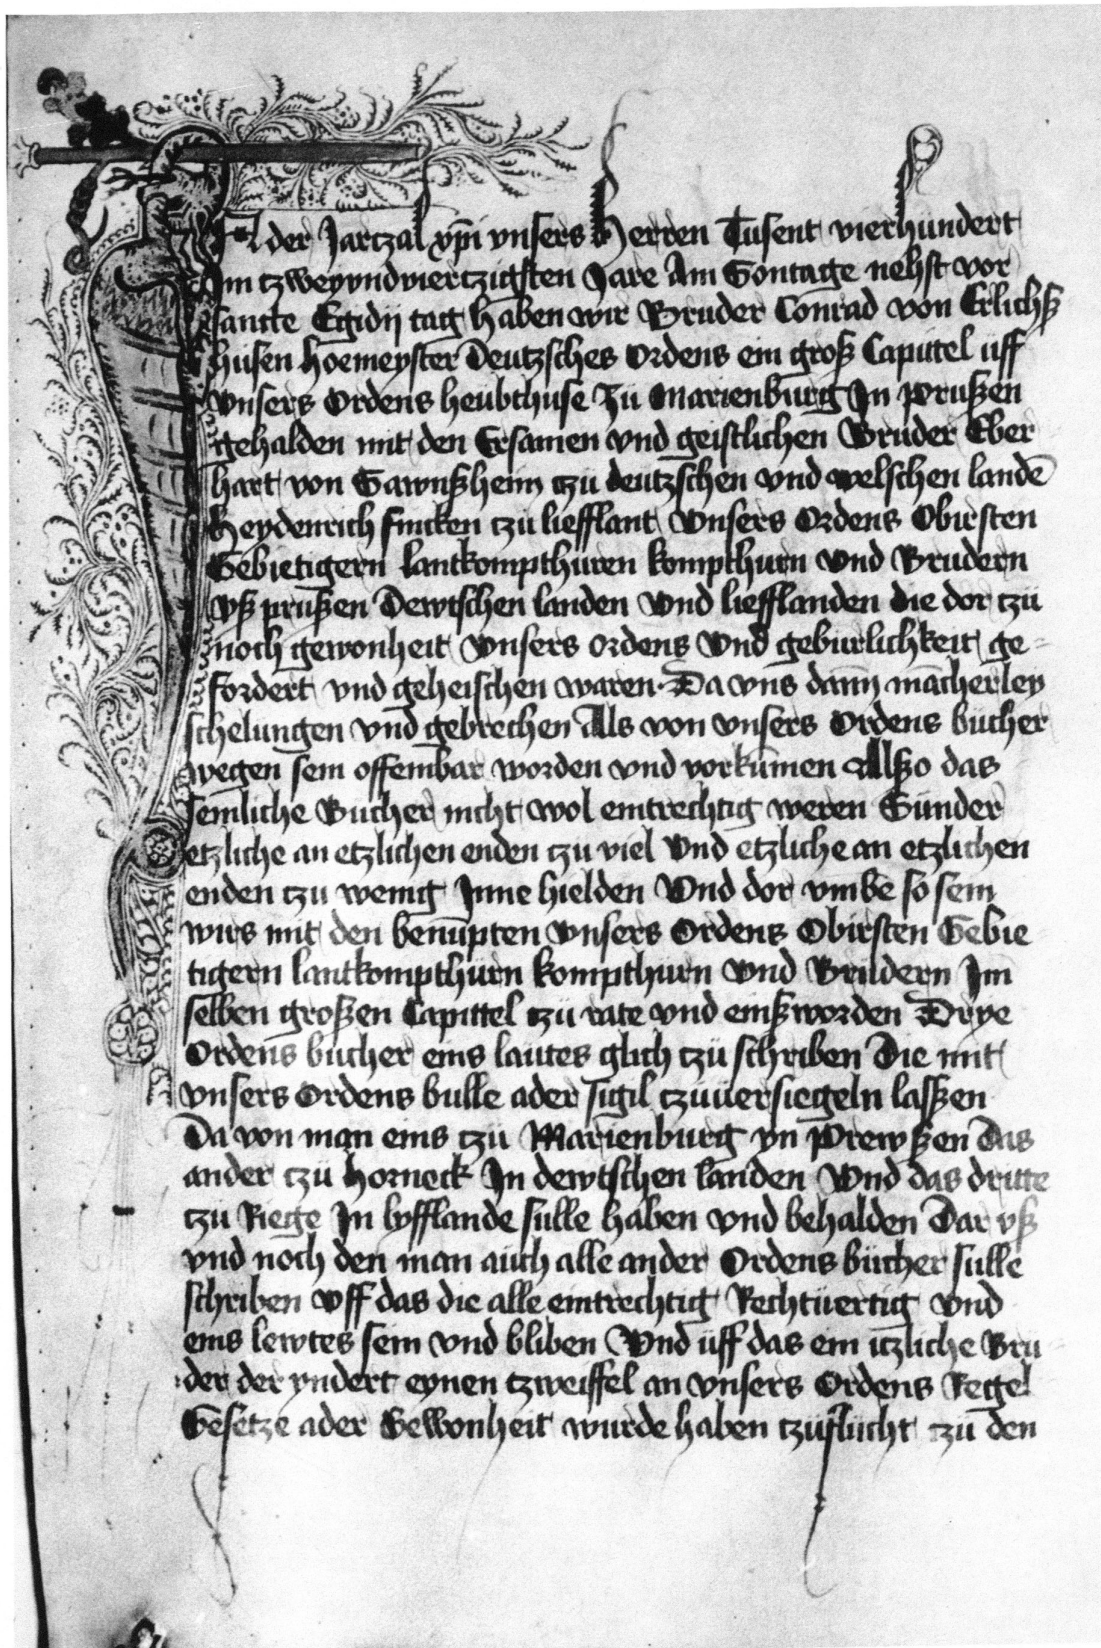 In der Jarczal xp̄i vnsers Herren Tusent vierhundert
Im tzweyvndviertzigsten Jare Am Sontage nehst vor
sancte Egidij tag haben wir Bruder Conrad von Erlichß
husen hoemeyster Deutzsches Ordens ein groß Capittel uff
vnsers Ordens heubthuse zu Marienburg In Prußen
gehalden mit den Ersamen vnd geistlichen Bruder Eber
hart von Sawnßheim tzu deutzschen vnd welschen landē
Heydenrich fincken tzu liefflant vnsers Ordens Obirsten
Gebietigern lantkompthuren kompthurn vnd Brudern
vß prußen Dewtschen landen vnd liefflanden die dor tzu
noch gewonheit vnsers ordens vnd geburlichkeit ge=
fordert vnd geheischen waren. Da vns dann mācherley
schelungen vnd gebrechen Als von vnsers Ordens bucher
wegen sein offembar worden vnd vorkūmen Allßo das
semliche Bucher nicht wol eintrechtig weren Sunder
etzliche an etzlichen enden tzu viel vnd etzliche an etzlichen
enden tzu wenig Inne hielden Vnd dor vmbe so sein
wirs mit den benūpten vnsers Ordens Obirsten Gebie
tigern lantkompthurn kompthurn vnd Brudern Im
selben großen Capittel tzu rate vnd einß worden Drye
Ordens bucher eins lautes glich tzu schriben Die mit
vnsers Ordens bulle ader sigil tzuuersiegeln laßen
Da von man eins tzu Marienburg yn Prewßen Das
ander tzu horneck In dewtschen landen Vnd das dritte
tzu Riege In lyfflande sulle haben vnd behalden Dar vß
vnd noch den man auch alle ander Ordens bucher sulle
schriben vff das die alle eintrechtig Rechtuertig vnd
eins lewtes sein vnd bliben Vnd uff das ein itzliche Bru
der der yndert eynen tzweiffel an vnsers Ordens Regel
Gesetze ader Gewonheit wurde haben tzuflucht tzu den